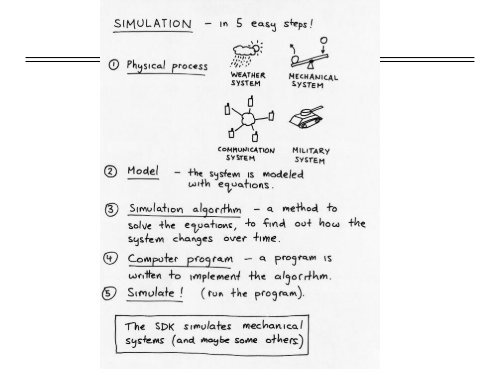 SIMULATION - in 5 easy steps!
① Physical process
WEATHER SYSTEM
MECHANICAL SYSTEM
COMMUNICATION SYSTEM
MILITARY SYSTEM
② Model - the system is modeled
with equations.
③ Simulation algorithm - a method to
solve the equations, to find out how the
system changes over time.
④ Computer program - a program is
written to implement the algorithm.
⑤ Simulate! (run the program).
The SDK simulates mechanical
systems (and maybe some others)